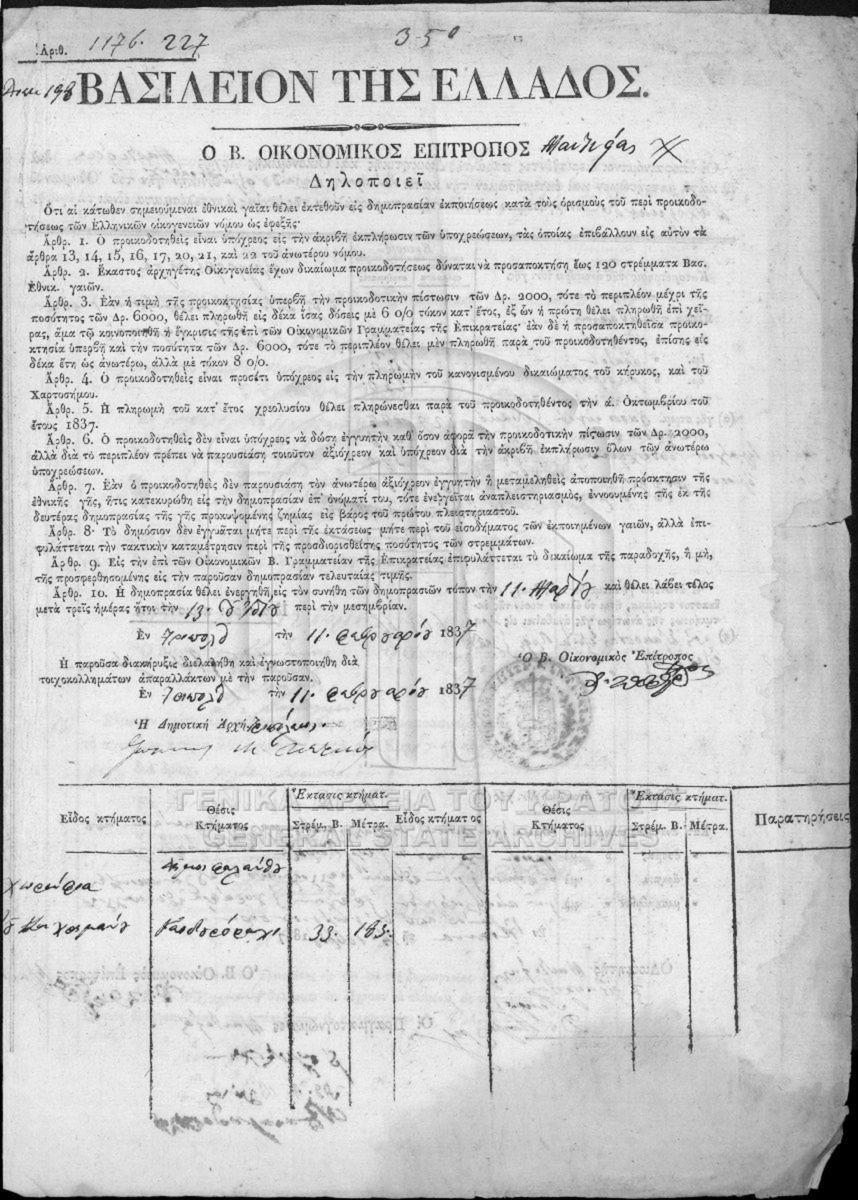 Ἀριθ. 1176. 227 3-5⁰
198 ΒΑΣΙΛΕΙΟΝ ΤΗΣ ΕΛΛΑΔΟΣ.
Ο Β. ΟΙΚΟΝΟΜΙΚΟΣ ΕΠΙΤΡΟΠΟΣ
Δηλοποιεῖ
Ὅτι αἱ κάτωθεν σημειούμεναι ἐθνικαὶ γαῖαι θέλει ἐκτεθοῦν εἰς δημοπρασίαν ἐκποιήσεως κατὰ τοὺς ὁρισμοὺς τοῦ περὶ προικοδο-
τήσεως τῶν Ἑλληνικῶν οἰκογενειῶν νόμου ὡς ἐφεξῆς·
Ἄρθρ. 1. Ὁ προικοδοτηθεὶς εἶναι ὑπόχρεος εἰς τὴν ἀκριβῆ ἐκπλήρωσιν τῶν ὑποχρεώσεων, τὰς ὁποίας ἐπιβάλλουν εἰς αὐτὸν τὰ
ἄρθρα 13, 14, 15, 16, 17, 20, 21, καὶ 22 τοῦ ἀνωτέρω νόμου.
Ἄρθρ. 2. Ἕκαστος ἀρχηγέτης Οἰκογενείας ἔχων δικαίωμα προικοδοτήσεως δύναται νὰ προσαποκτήσῃ ἕως 120 στρέμματα Βασ.
Ἐθνικ. γαιῶν.
Ἄρθρ. 3. Ἐὰν ἡ τιμὴ τῆς προικοκτησίας ὑπερβῇ τὴν προικοδοτικὴν πίστωσιν τῶν Δρ. 2000, τότε τὸ περιπλέον μέχρι τῆς
ποσότητος τῶν Δρ. 6000, θέλει πληρωθῆ εἰς δέκα ἴσας δόσεις μὲ 6 0/0 τόκον κατ' ἔτος, ἐξ ὧν ἡ πρώτη θέλει πληρωθῆ ἐπὶ χεῖ-
ρας, ἅμα τῷ κοινοποιηθῇ ἡ ἔγκρισις τῆς ἐπὶ τῶν Οἰκονομικῶν Γραμματείας τῆς Ἐπικρατείας· ἐὰν δὲ ἡ προσαποκτηθεῖσα προικο-
κτησία ὑπερβῇ καὶ τὴν ποσότητα τῶν Δρ. 6000, τότε τὸ περιπλέον θέλει μὲν πληρωθῆ παρὰ τοῦ προικοδοτηθέντος, ἐπίσης εἰς
δέκα ἔτη ὡς ἀνωτέρω, ἀλλὰ μὲ τόκον 8 0/0.
Ἄρθρ. 4. Ὁ προικοδοτηθεὶς εἶναι προσέτι ὑπόχρεος εἰς τὴν πληρωμὴν τοῦ κανονισμένου δικαιώματος τοῦ κήρυκος, καὶ τοῦ
Χαρτοσήμου.
Ἄρθρ. 5. Ἡ πληρωμὴ τοῦ κατ' ἔτος χρεολυσίου θέλει πληρώνεσθαι παρὰ τοῦ προικοδοτηθέντος τὴν ά. Ὀκτωμβρίου τοῦ
ἔτους 1837.
Ἄρθρ. 6. Ὁ προικοδοτηθεὶς δὲν εἶναι ὑπόχρεος νὰ δώσῃ ἐγγυητὴν καθ' ὅσον ἀφορᾷ τὴν προικοδοτικὴν πίστωσιν τῶν Δρ. 2000,
ἀλλὰ διὰ τὸ περιπλέον πρέπει νὰ παρουσιάσῃ τοιοῦτον ἀξιόχρεον καὶ ὑπόχρεον διὰ τὴν ἀκριβῆ ἐκπλήρωσιν ὅλων τῶν ἀνωτέρω
ὑποχρεώσεων.
Ἄρθρ. 7. Ἐὰν ὁ προικοδοτηθεὶς δὲν παρουσιάσῃ τὸν ἀνωτέρω ἀξιόχρεον ἐγγυητὴν ἢ μεταμεληθεὶς ἀποποιηθῇ πρόσκτησιν τῆς
ἐθνικῆς γῆς, ἥτις κατεκυρώθη εἰς τὴν δημοπρασίαν ἐπ' ὀνόματί του, τότε ἐνεργεῖται ἀναπλειστηριασμὸς, ἐννοουμένης τῆς ἐκ τῆς
δευτέρας δημοπρασίας τῆς γῆς προκυψομένης ζημίας εἰς βάρος τοῦ πρώτου πλειστηριαστοῦ.
Ἄρθρ. 8. Τὸ δημόσιον δὲν ἐγγυᾶται μήτε περὶ τῆς ἐκτάσεως μήτε περὶ τοῦ εἰσοδήματος τῶν ἐκποιημένων γαιῶν, ἀλλὰ ἐπι-
φυλάττεται τὴν τακτικὴν καταμέτρησιν περὶ τῆς προσδιορισθείσης ποσότητος τῶν στρεμμάτων.
Ἄρθρ. 9. Εἰς τὴν ἐπὶ τῶν Οἰκονομικῶν Β. Γραμματείαν τῆς Ἐπικρατείας ἐπιφυλάττεται τὸ δικαίωμα τῆς παραδοχῆς, ἢ μὴ,
τῆς προσφερθησομένης εἰς τὴν παροῦσαν δημοπρασίαν τελευταίας τιμῆς.
Ἄρθρ. 10. Ἡ δημοπρασία θέλει ἐνεργηθῆ εἰς τὸν συνήθη τῶν δημοπρασιῶν τόπον τὴν 11. Μαρτίου καὶ θέλει λάβει τέλος
μετὰ τρεῖς ἡμέρας ἤτοι τὴν 13. τοῦ ἰδίου περὶ τὴν μεσημβρίαν.
Ἐν Τριπολ. τὴν 11. Φεβρουαρίου 1837
Ὁ Β. Οἰκονομικὸς Ἐπίτροπος
Ἡ παροῦσα διακήρυξις διελαλήθη καὶ ἐγνωστοποιήθη διὰ
τοιχοκολλημάτων ἀπαραλλάκτων μὲ τὴν παροῦσαν.
Ἐν Τριπολ. τὴν 11. Φεβρουαρίου 1837
Ἡ Δημοτικὴ Ἀρχὴ Τριπόλεως.
ΓΕΝΙΚΑ ΑΡΧΕΙΑ ΤΟΥ ΚΡΑΤΟΥΣ
GENERAL STATE ARCHIVES
Εἶδος κτήματος Θέσις Κτήματος Ἔκτασις κτήματ. Στρέμ. Β. Μέτρα. Εἶδος κτήματος Θέσις Κτήματος Ἔκτασις κτήματ. Στρέμ. Β. Μέτρα. Παρατηρήσεις
Δήμου Φαλάνθου
Χωράφια
33. 183.